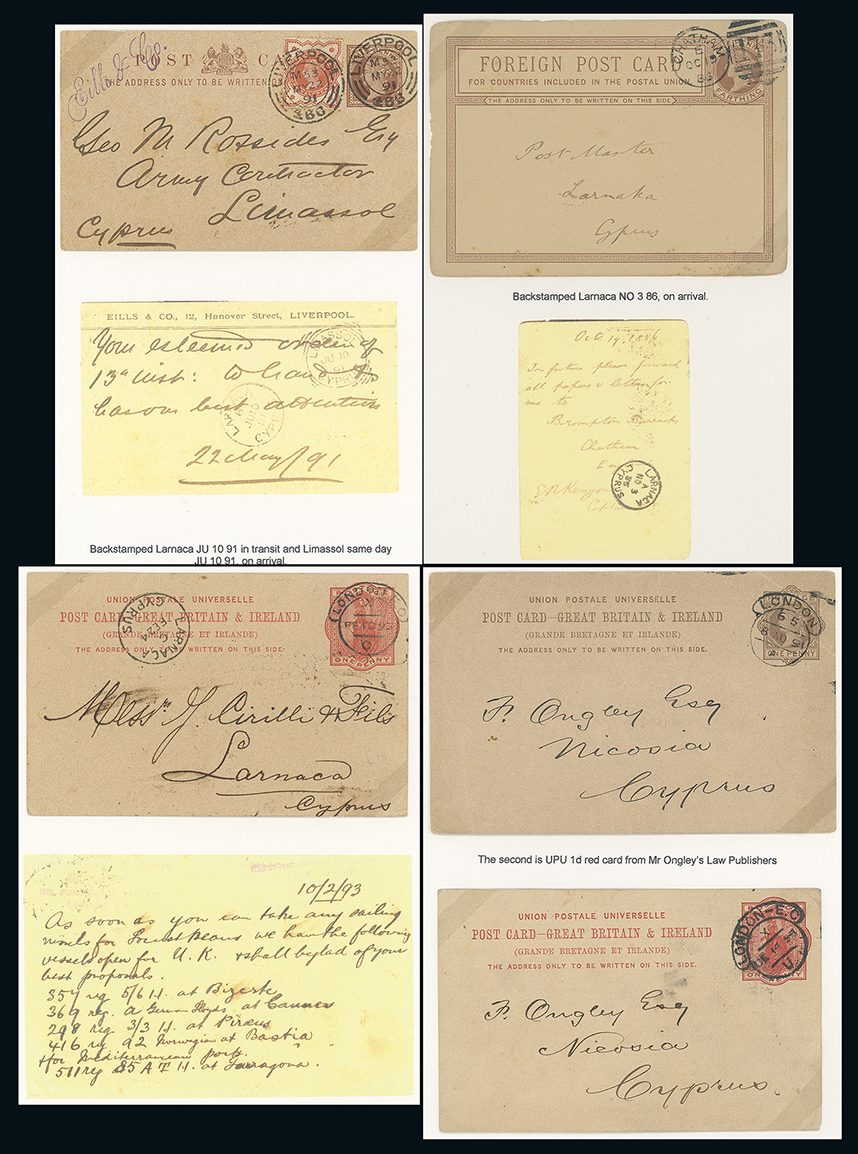 Eills & Co.
POST CA
THE ADDRESS ONLY TO BE WRITTEN ON THIS SIDE
LIVERPOOL
M53
MY 22
91
466
LIVERPOOL
M53
MY 22
91
466
Geo M Rossides Esq
Army Contractor
Limassol
Cyprus
EILLS & CO., 12, Hanover Street, LIVERPOOL.
Your esteemed order of
13th inst: to hand &
has our best attention
22 May/91
LIMASSOL
JU 10
91
CYPRUS
LARNACA
JU 10
CYPRUS
Backstamped Larnaca JU 10 91 in transit and Limassol same day
JU 10 91, on arrival.
FOREIGN POST CARD
FOR COUNTRIES INCLUDED IN THE POSTAL UNION.
THE ADDRESS ONLY TO BE WRITTEN ON THIS SIDE.
CHATHAM
E
OC 19
86
FARTHING
Post Master
Larnaka
Cyprus
Backstamped Larnaca NO 3 86, on arrival.
Oct 19. 1886
In future please forward
all papers & letters for
me to
Brompton Barracks
Chatham
E R Kenyon
LARNACA
A
NO 3
86
CYPRUS
UNION POSTALE UNIVERSELLE
POST CARD—GREAT BRITAIN & IRELAND
(GRANDE BRETAGNE ET IRLANDE)
THE ADDRESS ONLY TO BE WRITTEN ON THIS SIDE.
LARNACA
FE 24
CYPRUS
LONDON
ONE PENNY
Messrs J. Cirilli & Fils
Larnaca
Cyprus
10/2/93
As soon as you can take any sailing
vessels for Locust Beans we have the following
vessels open for U.K. & shall be glad of your
best proposals.
357 reg 5/6 I.I. at Bizerte
369 reg. A German Lloyds at Cannes
298 reg 3/3 I.I. at Pireus
416 reg A2 Norwegian at Bastia
& for Mediterranean ports.
511 reg at Tarragona.
UNION POSTALE UNIVERSELLE
POST CARD—GREAT BRITAIN & IRELAND
(GRANDE BRETAGNE ET IRLANDE)
THE ADDRESS ONLY TO BE WRITTEN ON THIS SIDE.
LONDON
65
91
ONE PENNY
F. Ongley Esq
Nicosia
Cyprus
The second is UPU 1d red card from Mr Ongley's Law Publishers
UNION POSTALE UNIVERSELLE
POST CARD—GREAT BRITAIN & IRELAND
(GRANDE BRETAGNE ET IRLANDE)
THE ADDRESS ONLY TO BE WRITTEN ON THIS SIDE.
LONDON-E.C
X
ONE PENNY
F. Ongley Esq
Nicosia
Cyprus.